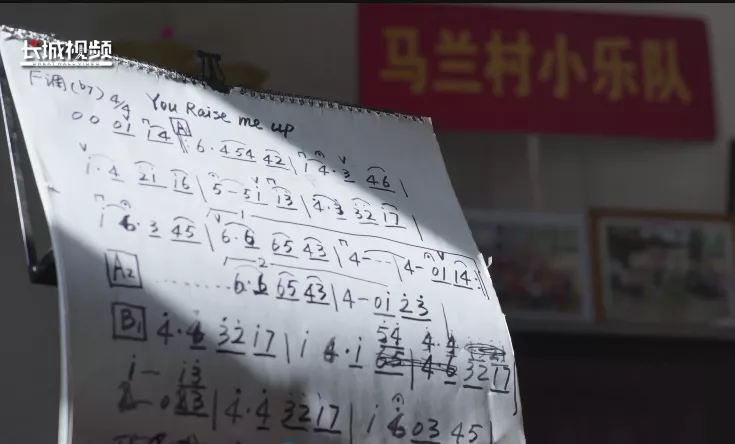 长城视频
GREAT WALL VIDEO
马兰村小乐队
F调(b7) 4/4 You Raise me up
0 0 01 14 A | 6·454 42 | 1 4·3 46 |
1·4 21 16 | 5-51 13 | 4·3 32 17 |
1 6·3 45 | 6·6 65 43 | 4--- | 4-01 14 :|
A2 ........ 6·6 65 43 | 4-01 23
B1 4·4 32 17 | 1 4·1 54 4·4
32 17
1- 13
43 | 4·4 32 17 | 1 6 03 45 |